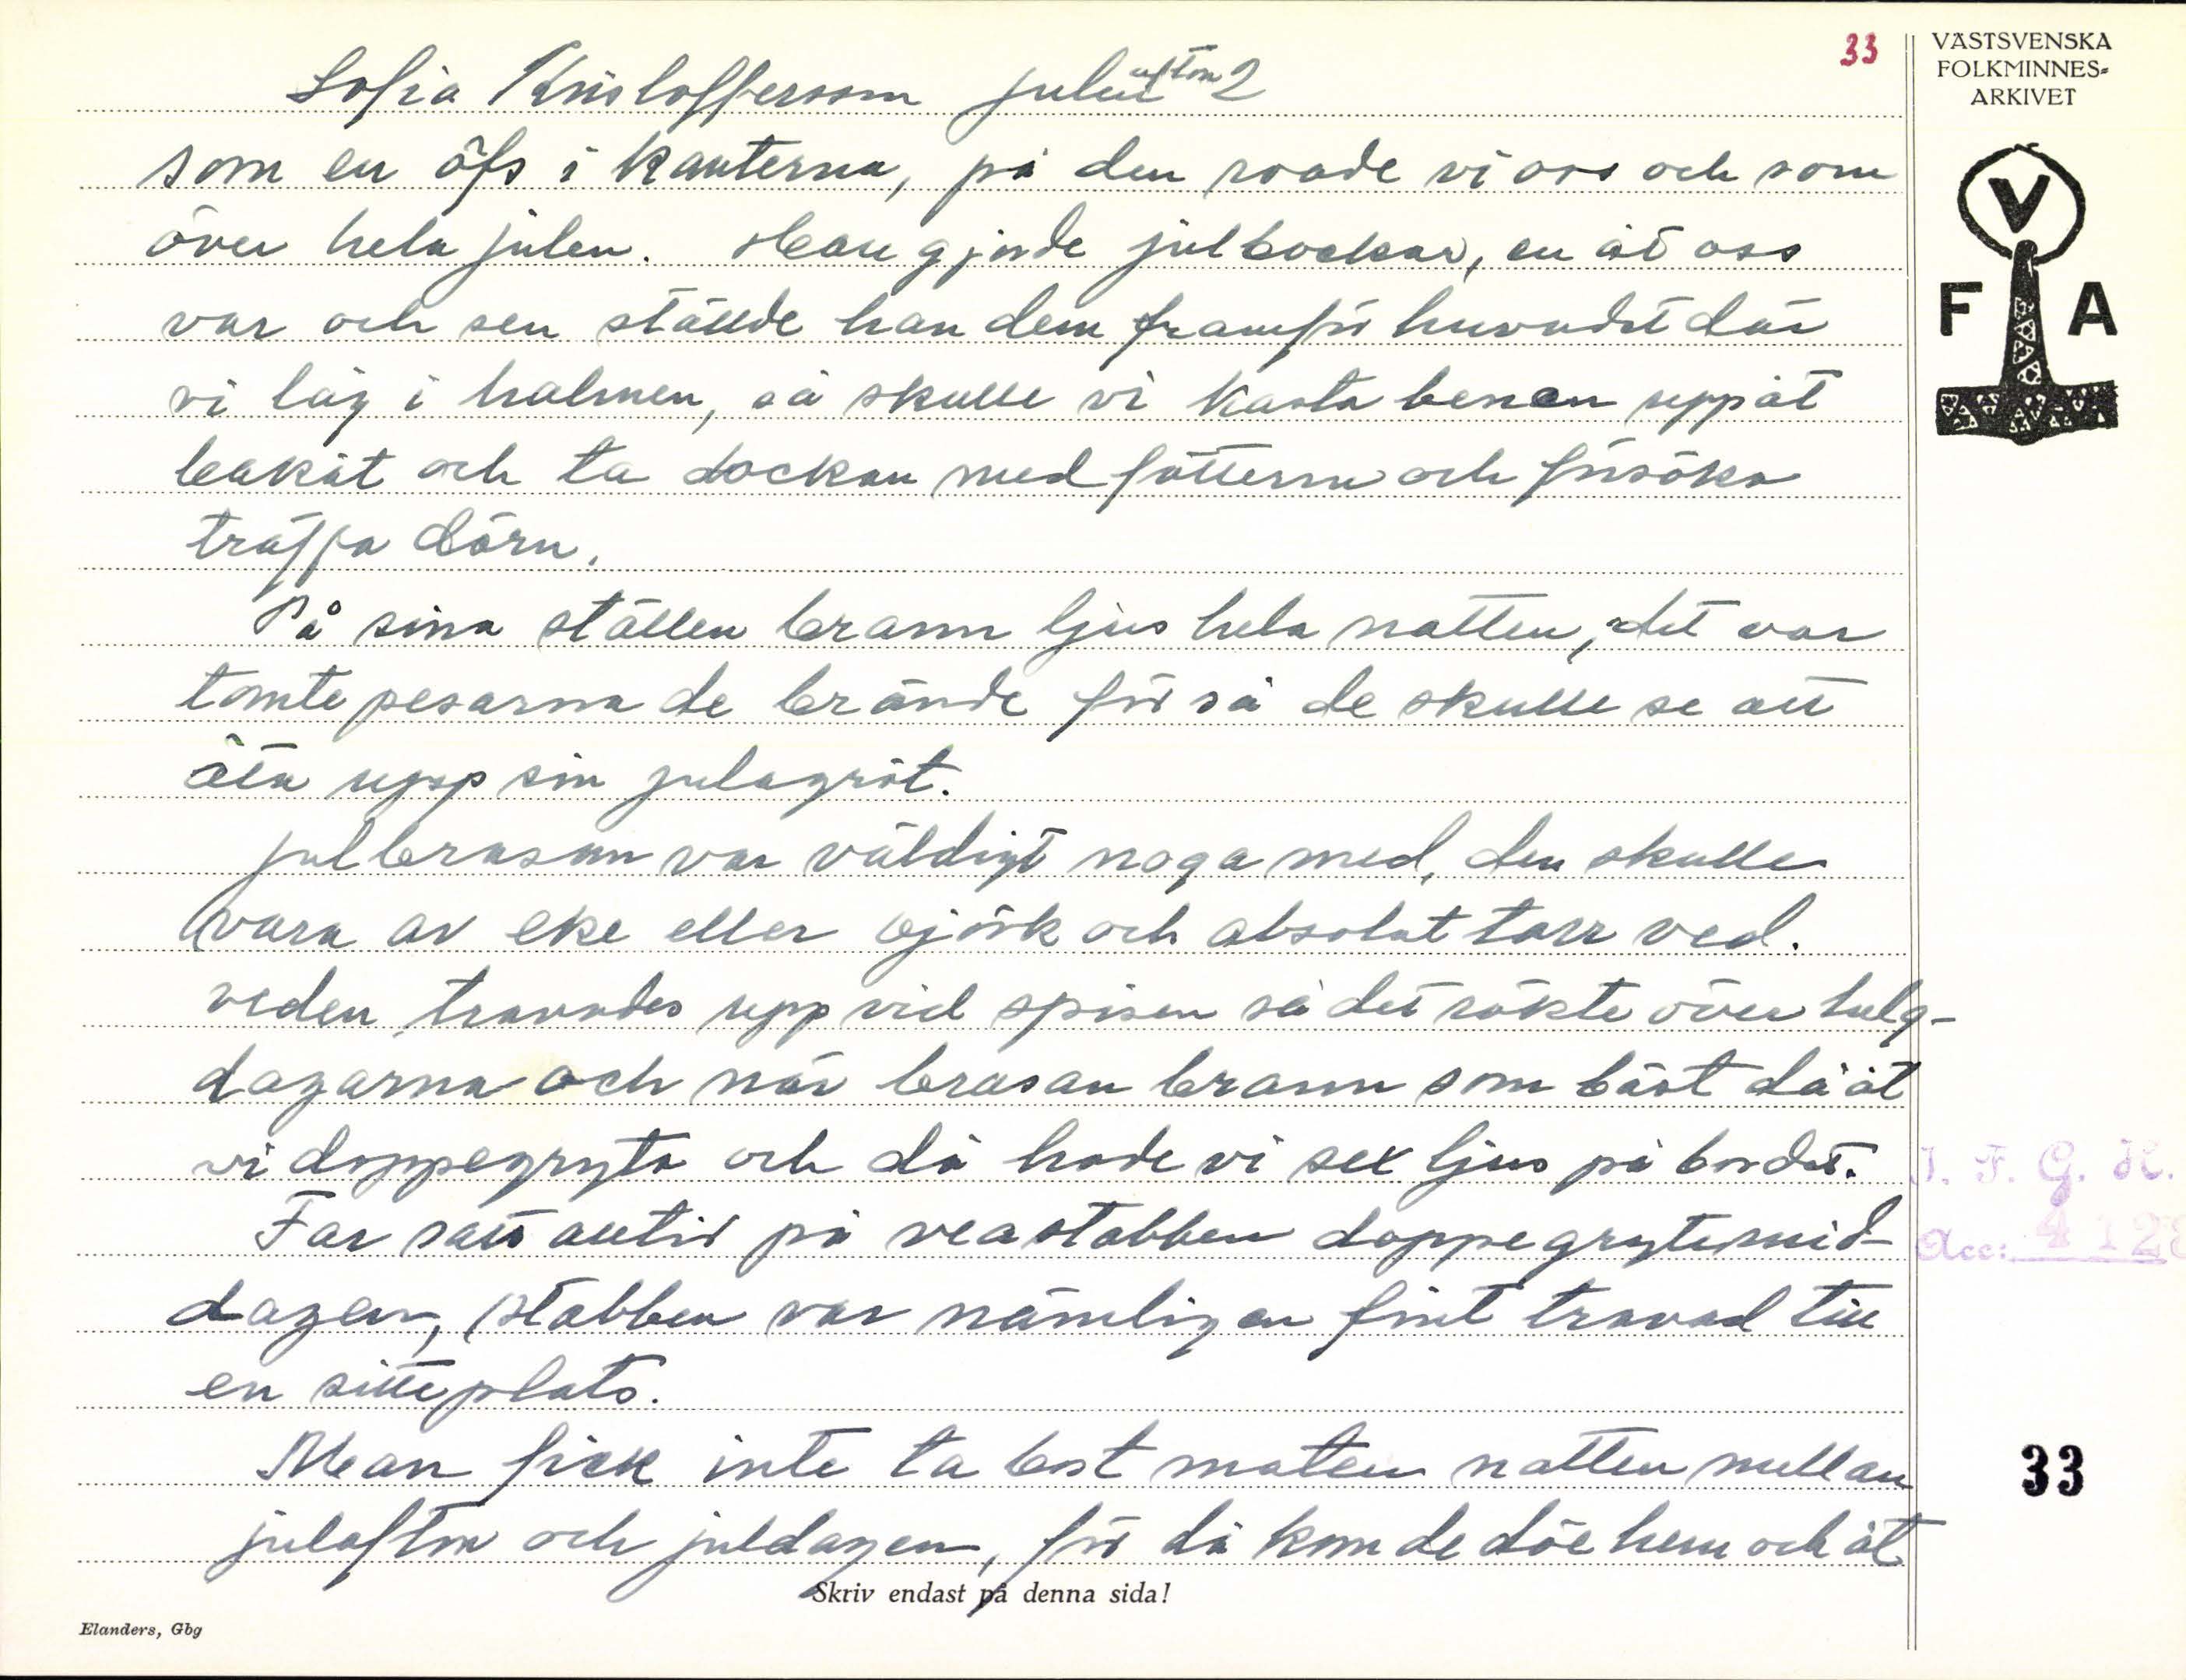 33
VÄSTSVENSKA
FOLKMINNES-
ARKIVET
V
F A
Sofia Kristoffersson julafton 2
som en öfs i kanterna, på den roade vi oss och som
över hela julen. Han gjorde julbockar, en åt oss
var och sen ställde han dem framför huvudet där
vi låg i halmen, så skulle vi kasta benen uppåt
bakåt och ta bockan med fötterna och försöka
träffa dörn.
På sina ställen brann ljus hela natten, det var
tomtepesarna de brände för så de skulle se att
äta upp sin julagröt.
julbrasan var väldigt noga med, den skulle
vara av eke eller björk och absolut torr ved.
veden travades upp vid spisen så det räkte över helg-
dagarna och när brasan brann som bäst då åt
vi doppegryta och då hade vi sex ljus på bordet.
Far satt alltid på veastabben doppegrytemid-
dagen, stabben var nämligen fint travad till
en sitteplats.
Man fick inte ta bort maten natten mellan
julafton och juldagen, för då kom de döe hem och åt
I. F. G. H.
Acc: 4128
33
Skriv endast på denna sida!
Elanders, Gbg